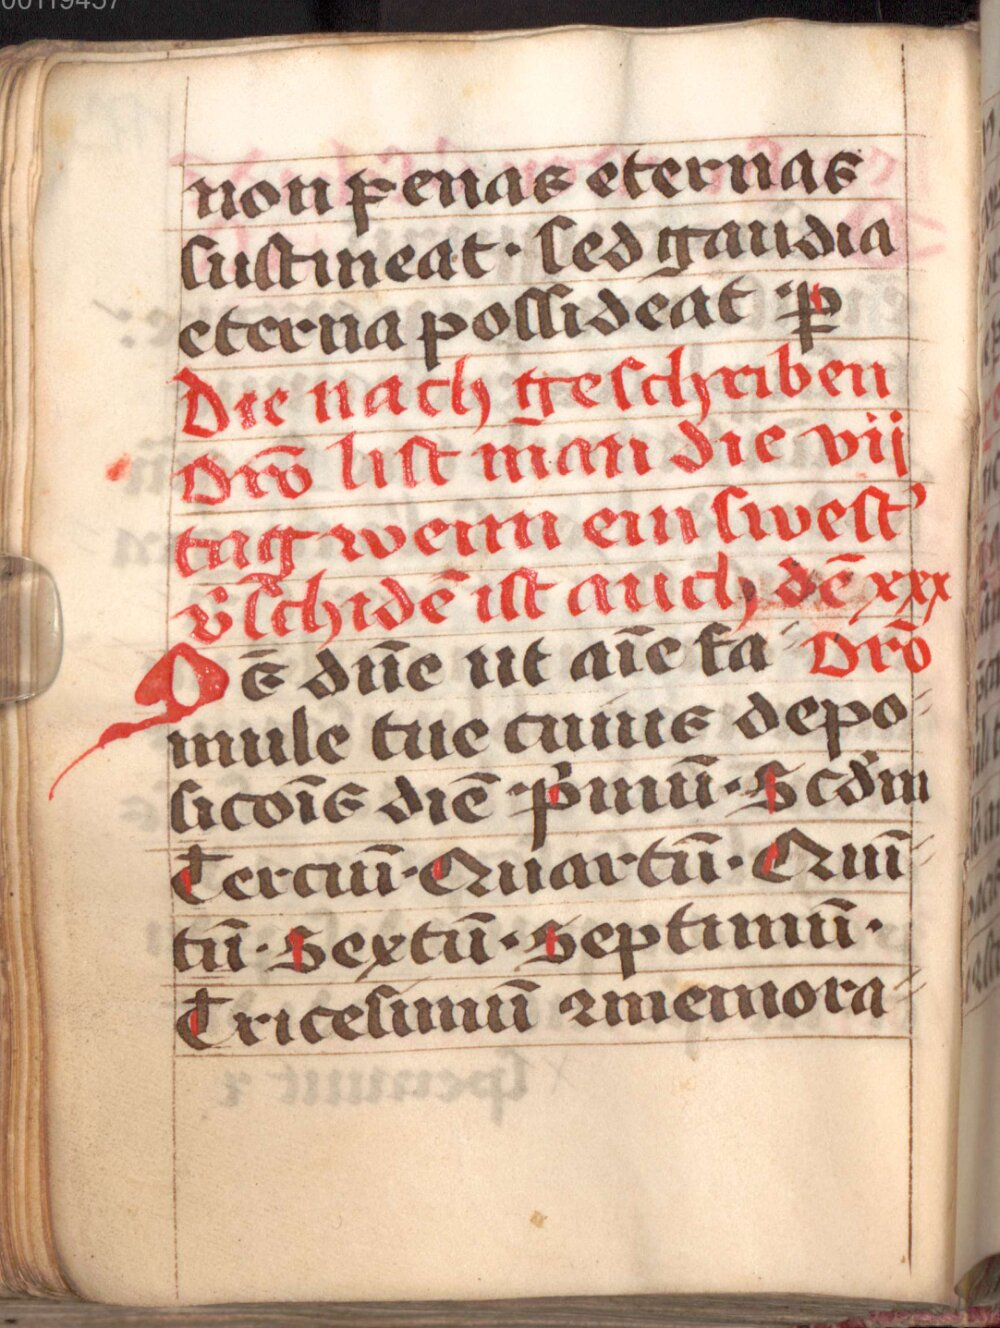 non penas eternas
sustineat · sed gaudia
eterna possideat · p̄
Die nach geschriben
Orō list man die vij
tag wenn ein swest'
v̄schidē ist auch dē xxx
Qs̄ dn̄e ut aīe fa Orō
mule tue cuius depo
sicōis diē p̄mū · Scdm
Terciū · Quartū · Quī
tū · Sextū · Septimū ·
Tricesimū ꝯmemora